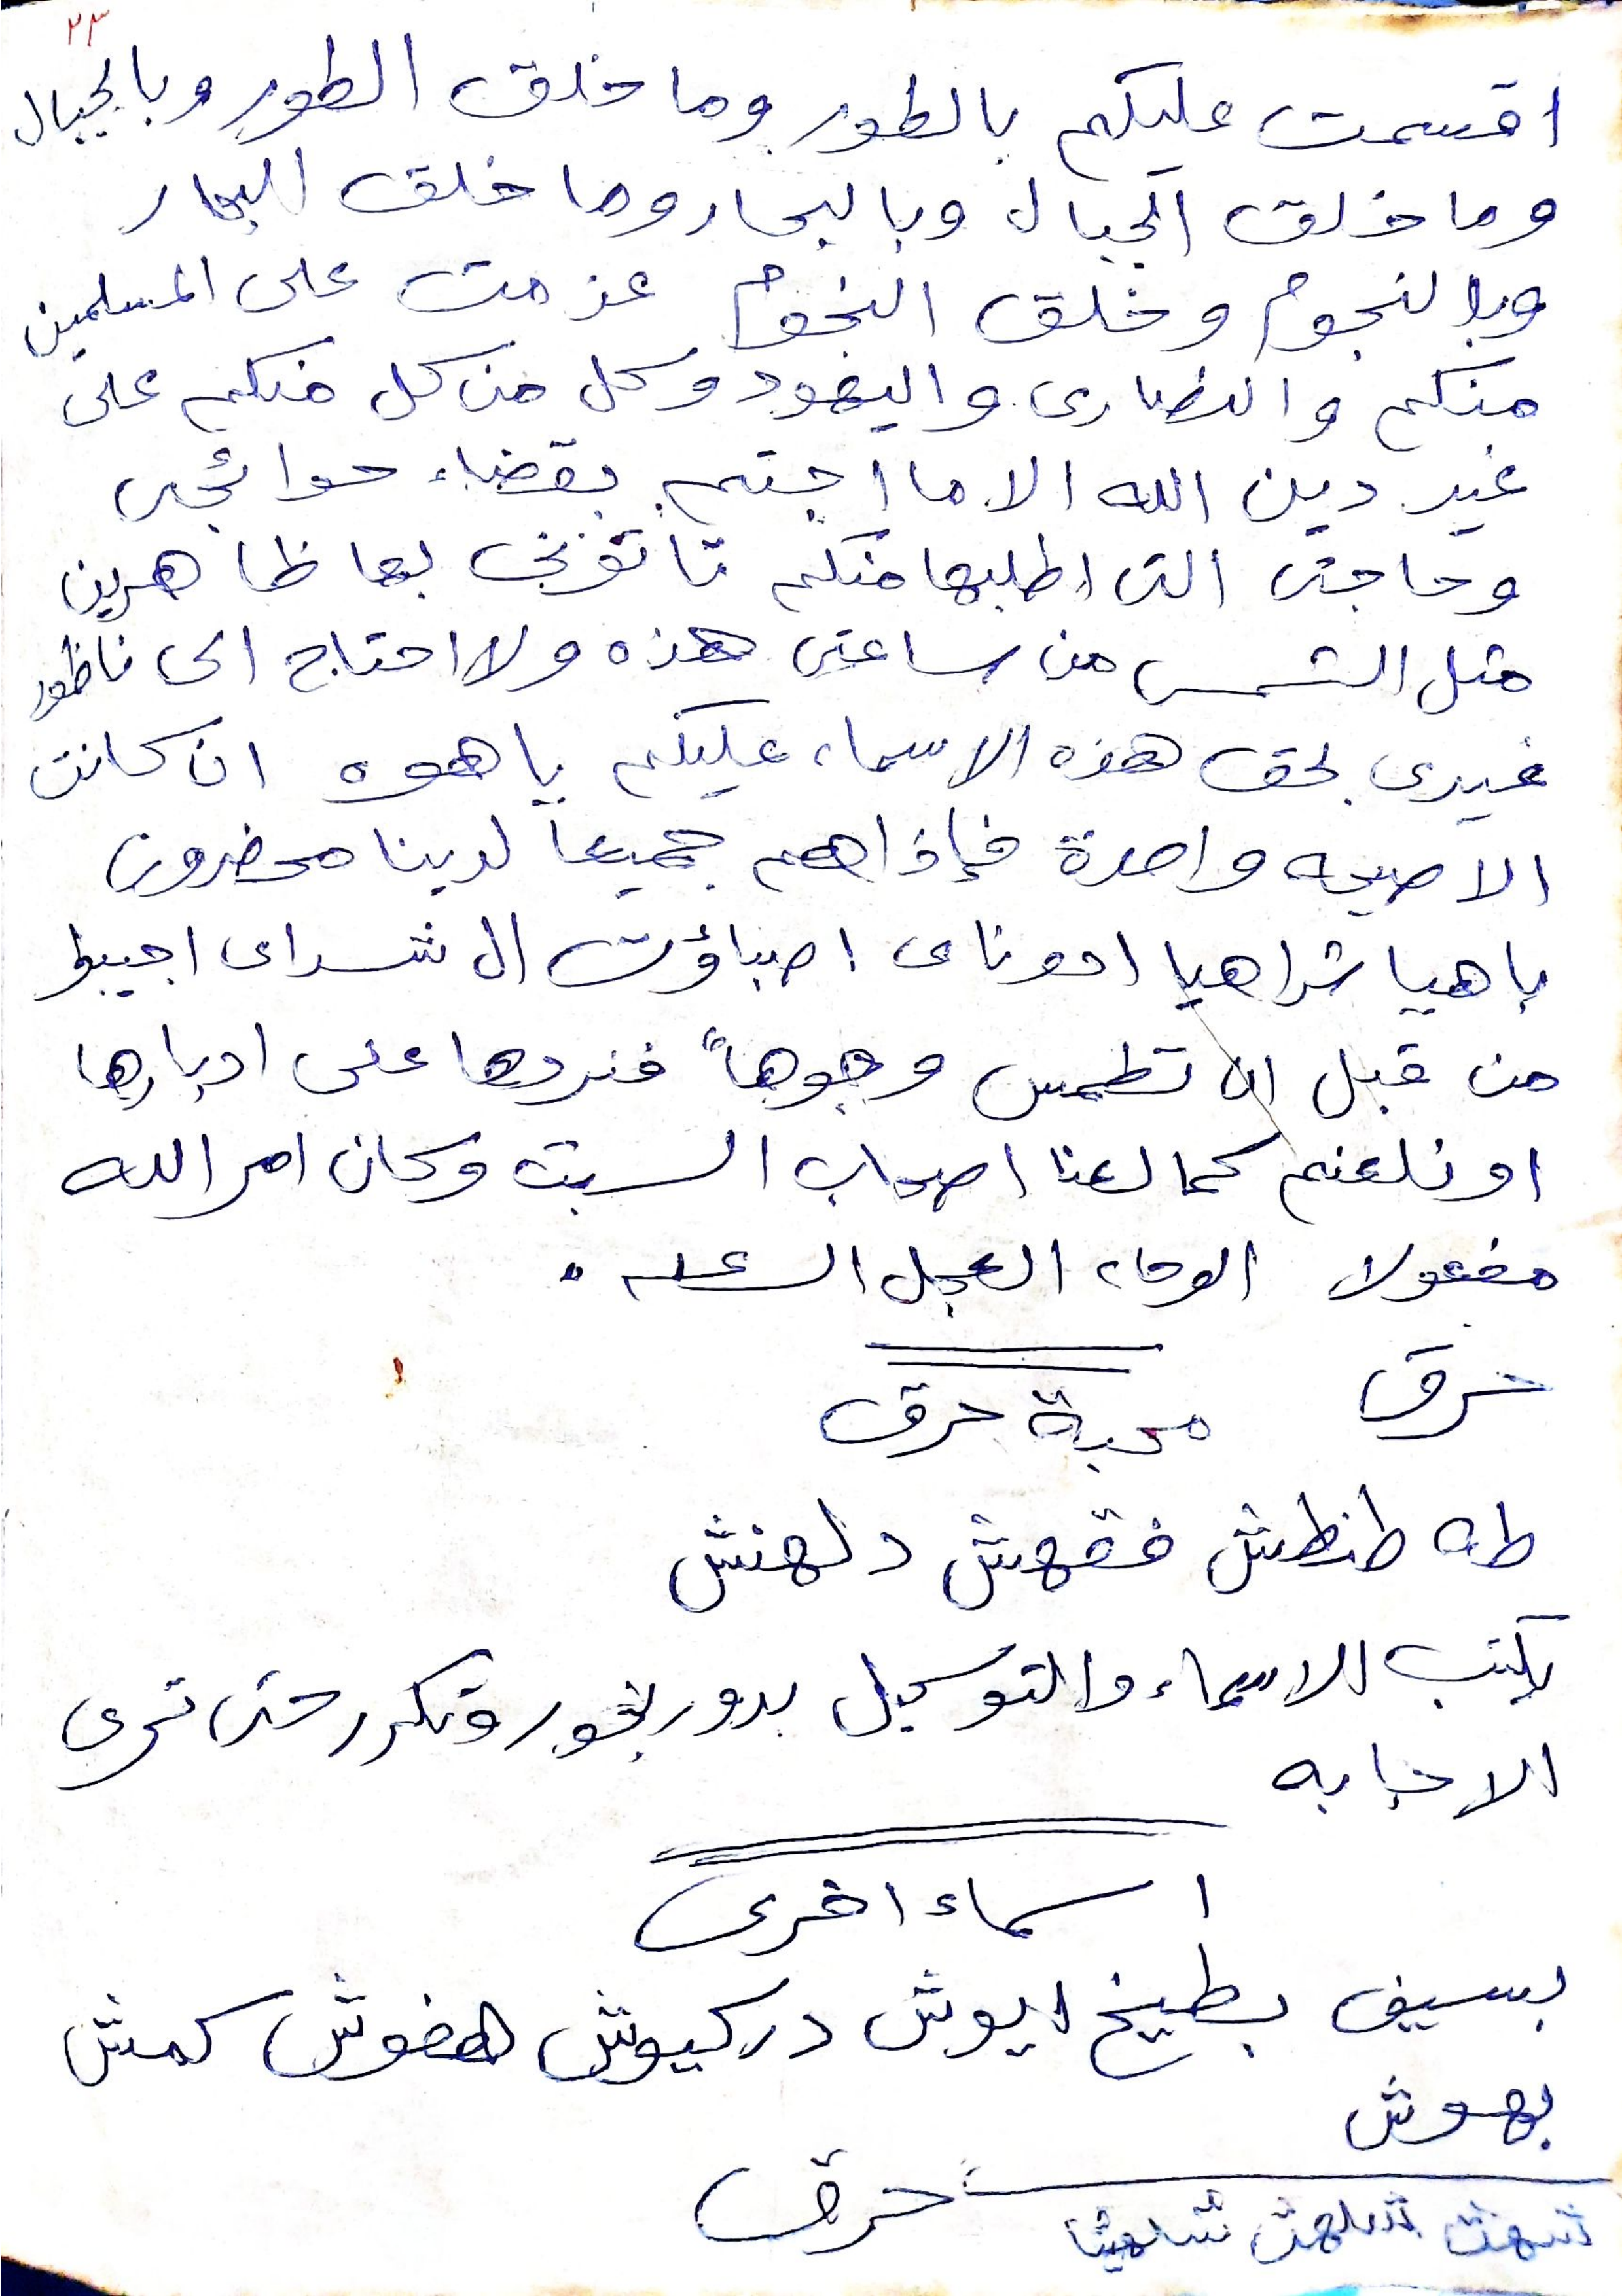 ٢٣
اقسمت عليكم بالطور وما خلق الطور وبالجبال
وما خلق الجبال وبالبحار وما خلق البحار
وبالنجوم وخلق النجوم عزمت على المسلمين
منكم والنصارى واليهود وكل من كل منكم على
غير دين الله الا ما اجبتم بقضاء حوائجى
وحاجتى التى اطلبها منكم تاتونى بها ظاهرين
مثل الشمس من ساعتى هذه ولا احتاج الى ناظور
غيرى بحق هذه الاسماء عليكم ياهوه ان كانت
الا صيحه واحدة فإذاهم جميعاً لدينا محضرون
باهيا شراهيا ادوناى اصباؤت ال شداى اجيبوا
من قبل ان تطمس وجوهاً فنردها على ادبارها
او نلعنهم كما لعنا اصحاب السبت وكان امر الله
مفعولا الوحاء العجل الساعه .
حرق
محبة حرق
طه طنطش فقهش دلهنش
يكتب الاسماء والتوكيل بدور بخور وتكرر حتى ترى
الاجابه
اسماء اخرى
بسيف بطيخ ايوش دركيوش هفوش كمش
بهوش
حرق